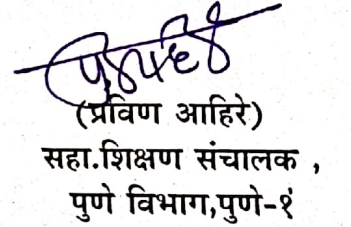 (प्रविण आहिरे)
सहा.शिक्षण संचालक ,
पुणे विभाग,पुणे-१